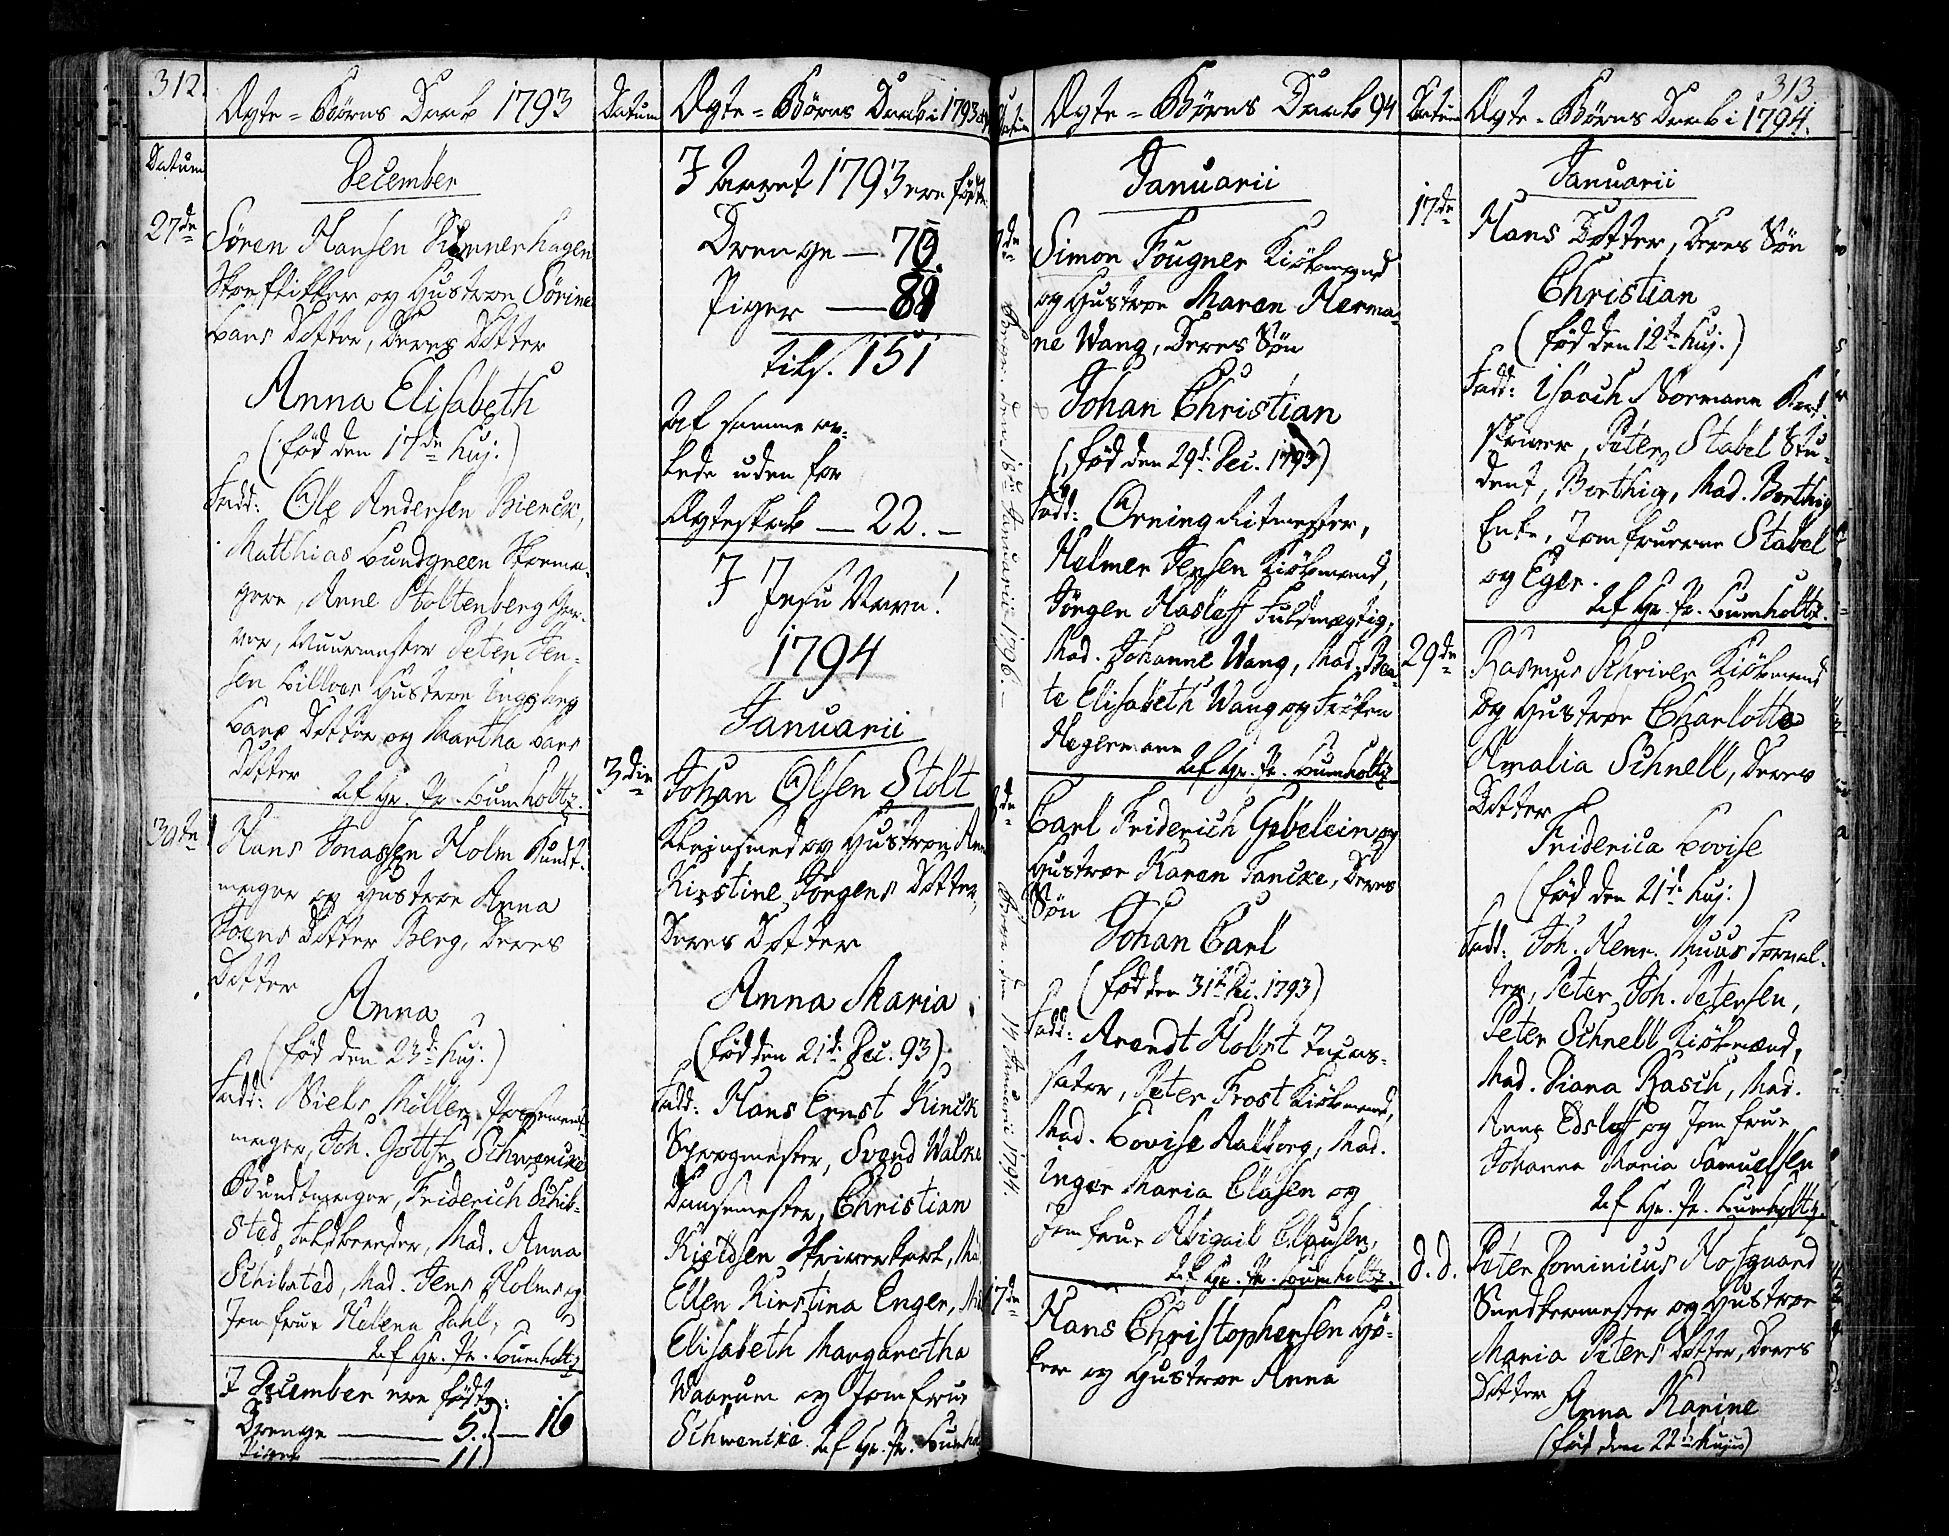 312.
Ægte-Børns Daab 1793
Datum
December
27de
Søren Hansen
Skoeflikker og Hustroe Sørine
Lars Dotter, Deres Dotter
Anna Elisabeth
(fød den 17de huj.)
Fadd: Ole Andersen Bienck,
Matthias Lundgreen Skoema-
gere, Anne Stoltenberg
Muurmester Peter Jen-
sen Hustroe Ingeborg
Lars Dotter og Martha Lars
Dotter
Af Hr. Pr. Lumholtz.
30de
Hans Jonassen Holm Bundt-
mager og Hustroe Anna
Joens Dotter Berg, Deres
Dotter
Anna
(fød den 23de huj.)
Fadd: Niels Møller
mager, Joh. Gottfr. Schwencke
Bundtmager, Friderich Schib-
sted, Mad. Anna
Schibsted, Mad. Jens Holms og
Jomfrue Helena Dahl,
Af Hr. Pr. Lumholtz
I December ere fødte:
Drenge — 5. — 16
Piger — 11
Datum
Ægte-Børns Daab i 1793
I Aaret 1793 ere fødte
Drenge — 70.
Piger — 81
tils. 151
Af samme av-
lede uden for
Ægteskab — 22. —
I Jesu Navn!
1794
Januarii
3die
Johan Olsen Stolt
Kleinsmed og Hustroe
Kirstine Jørgens Dotter,
Deres Dotter
Anna Maria
(fød den 21de Dec. 93)
Fadd: Hans Ernst Kinck
Sprogmester, Svend
Dansemester, Christian
Kieldsen Skriverkarl,
Ellen Kirstina Enger,
Elisabeth Margaretha
Waarum og Jomfrue
Schwencke. Af Hr. Pr.
Ægte-Børns Daab 94
Januarii
Simon Fougner Kiøbmand
og Hustroe Maren Herma-
ne Wang, Deres Søn
Johan Christian
(fød den 29de Dec. 1793)
Fadd: Orning Ritmester,
Helmer Jensen Kiøbmand,
Jørgen Hasleff Fuldmægtig,
Mad. Johanne Wang, Mad. Bea-
te Elisabeth Wang og Frøken
Hegermann
Af Hr. Pr. Lumholtz
Carl Friderich Gebelein og
Hustroe Karen Fancke, Deres
Søn
Johan Carl
(fød den 31te Dec. 1793)
Fadd: Arendt Holst Incas-
sator, Peter Frost Kiøbmand,
Mad. Lovise Aalborg, Mad.
Inger Maria Clasen og
Jomfrue Abigail Clausen,
Af Hr. Pr. Lumholtz.
17de
Hans Christophersen Hø-
ker og Hustroe Anna
Datum
313
Ægte-Børns Daab i 1794.
Januarii
17de
Hans Dotter, Deres Søn
Christian
(fød den 12te huj.)
Fadd: Isach Normann
Peter Stabel Stu-
dent, Borthig, Mad. Borthig
Enke, Jomfruerne Stabel
og Eger.
Af Hr. Pr. Lumholtz.
29de
Rasmus Schriver Kiøbmand
og Hustroe Charlotta
Amalia Schnell, Deres
Dotter
Friderica Lovise
(fød den 21de huj.)
Fadd: Joh. Henr. Muus Forval-
ter, Peter Joh. Petersen,
Peter Schnell Kiøbmænd,
Mad. Diana Rasch, Mad.
Anna Edsleff og Jomfrue
Johanna Maria Samuelsen
Af Hr. Pr. Lumholtz.
d. d.
Peter Dominicus Hofgaard
og Hustroe
Maria Peters Dotter, Deres
Dotter
Anna Karine
(fød den 22de hujus)